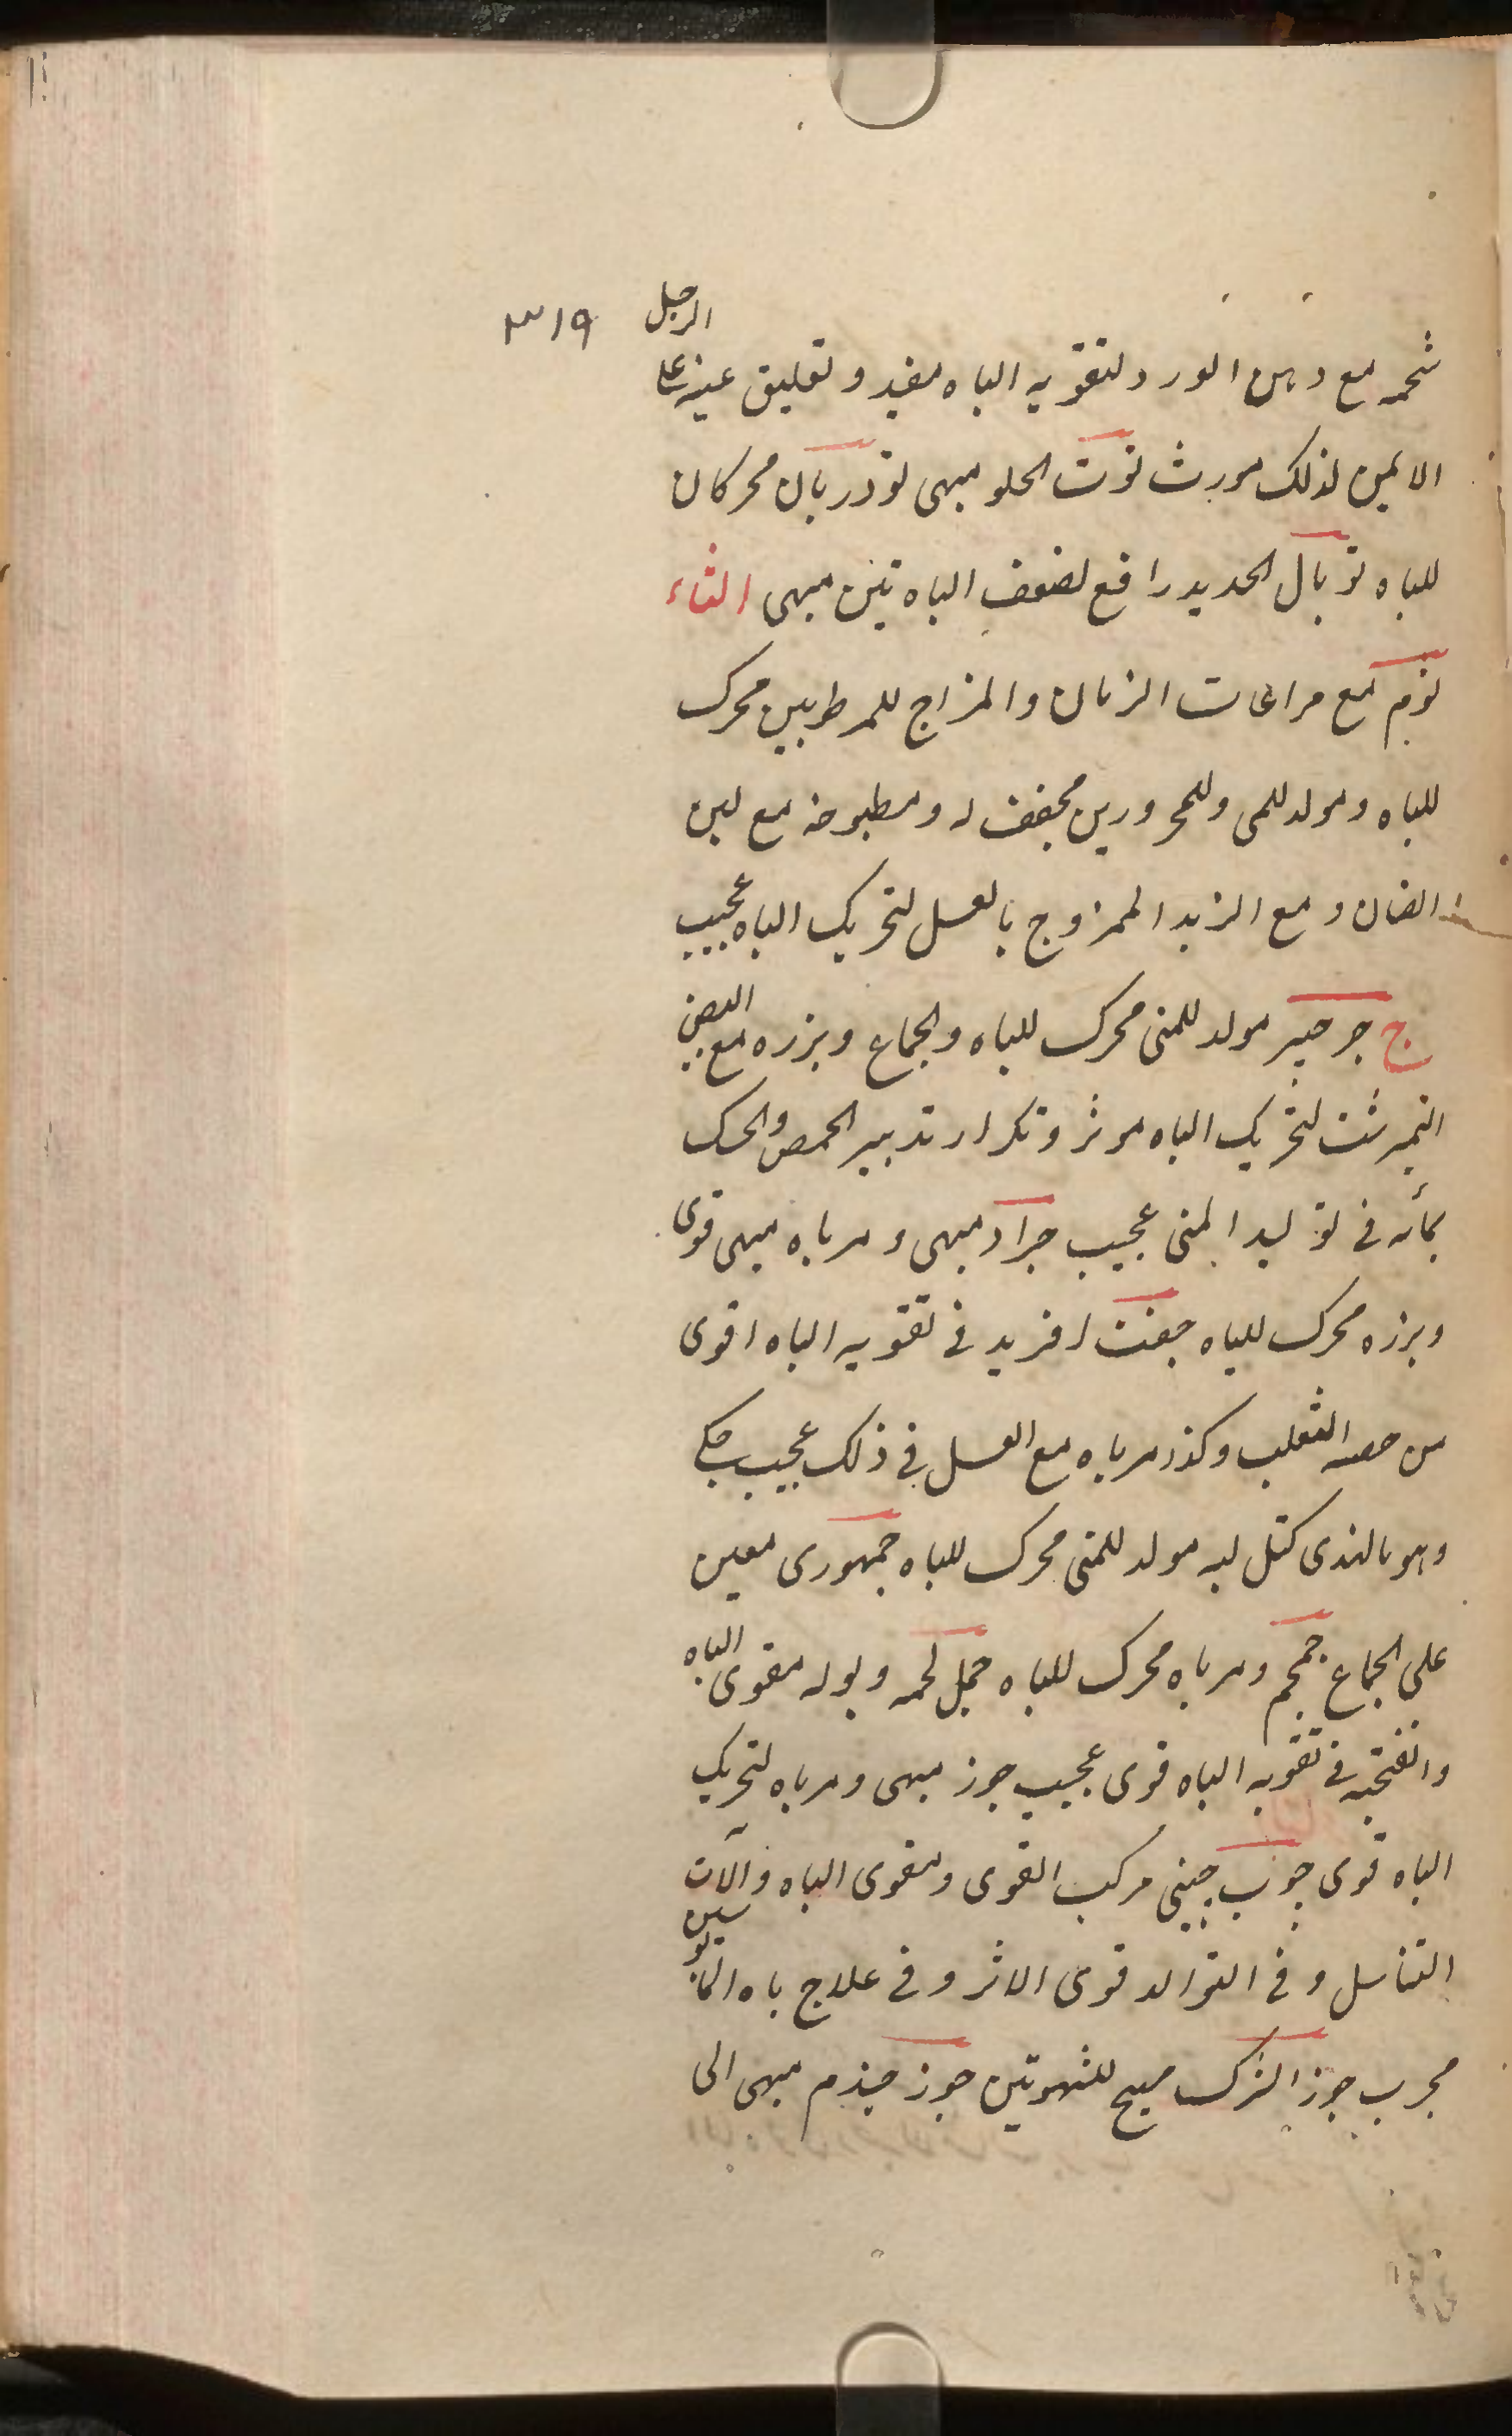 ٣١٩
شحمه مع دهن الورد لتقويه الباه مفيد وتعليق عينه على الرجل
الايمن لذلك مورث توت الحلو مبهى تودريان محركان
للباه توبال الحديد رافع لضعف الباه تين مبهى الثاء
ثوم مع مراعات الزمان والمزاج للمرطوبين محرك
للباه ومولد للمى وللمحرورين مجفف له ومطبوخه مع لبن
الضان ومع الزبد الممزوج بالعسل لتحريك الباه عجيب
ج جرجير مولد للمنى محرك للباه والجماع وبزره مع البيض
النيمرشت لتحريك الباه موثر وتكرار تدبير الحمص والحسك
بمائه فى توليد المنى عجيب جزر مبهى ومرباه مبهى قوى
وبزره محرك للباه جفت افريد فى تقويه الباه اقوى
من خصيه الثعلب وكذا مرباه مع العسل فى ذلك عجيب
وهو بالهندى كتل لبه مولد للمنى محرك للباه جمهورى معين
على الجماع جمجم ومرباه محرك للباه جمل لحمه وبوله مقوى الباه
وانفحته فى تقويه الباه قوى عجيب جوز مبهى ومرباه لتحريك
الباه قوى چوب چينى مركب القوى ومقوى الباه وآلات
التناسل وفى التوالد قوى الاثر وفى علاج باه المايوسين
مجرب جوز الشرك مهيج للشهوتين جوز جندم مبهى الى